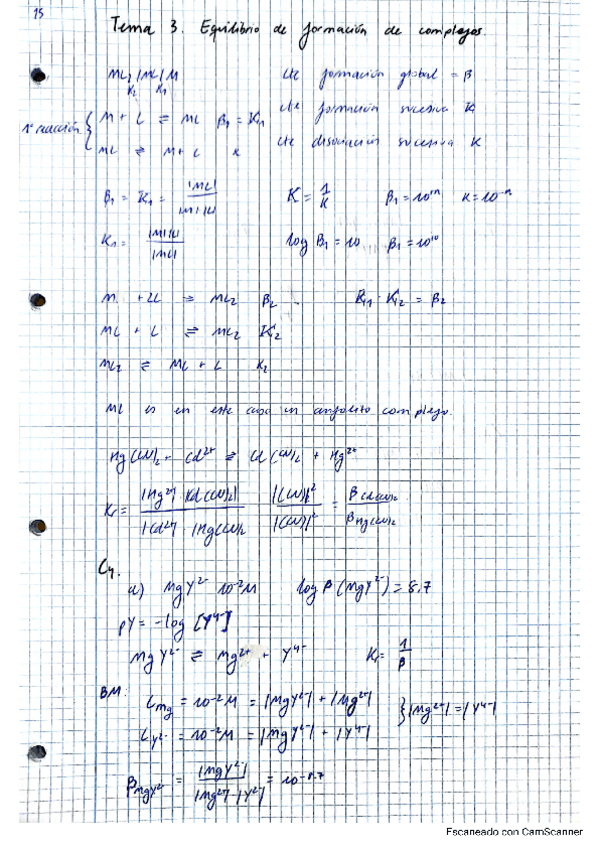 15
Tema 3. Equilibrio de formación de complejos.
ML2 | ML | M cte formación global = β
K2 K1
M + L ⇌ ML β1 = K̄1 cte formación sucesiva K̄
1ª reacción {
ML ⇌ M + L K cte disociación sucesiva K
β1 = K̄1 = |ML| / |M||L| K̄ = 1/K β1 = 10^n K = 10^-n
K1 = |M||L| / |ML| log β1 = 10 β1 = 10^10
M + 2L ⇌ ML2 β2 K̄1 · K̄2 = β2
ML + L ⇌ ML2 K̄2
ML2 ⇌ ML + L K2
ML es en este caso un anfolito complejo.
Hg(CN)2 + Cd2+ ⇌ Cd(CN)2 + Hg2+
Kr = |Hg2+| |Cd(CN)2| / |Cd2+| · |Hg(CN)2 |(CN)|2 / |(CN)|2 = β Cd(CN)2 / β Hg(CN)2
C4.
a) MgY2- 10-2 M log β (MgY2-) = 8,7
pY = -log [Y4-]
MgY2- ⇌ Mg2+ + Y4- Kr = 1/β
BM: CMg = 10-2 M = |MgY2-| + |Mg2+|
} |Mg2+| = |Y4-|
CY2- = 10-2 M = |MgY2-| + |Y4-|
βMgY2- = |MgY2-| / |Mg2+| · |Y2-| = 10-8.7
Escaneado con CamScanner